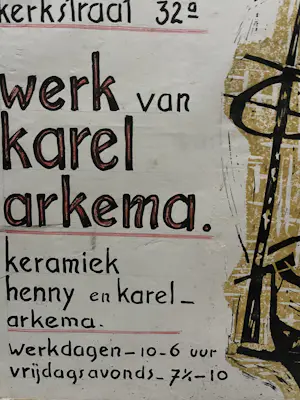 kerkstraat 32a
werk van
karel
arkema.
keramiek
henny en karel_
arkema.
werkdagen_10_6 uur
vrijdagsavonds_7½_10